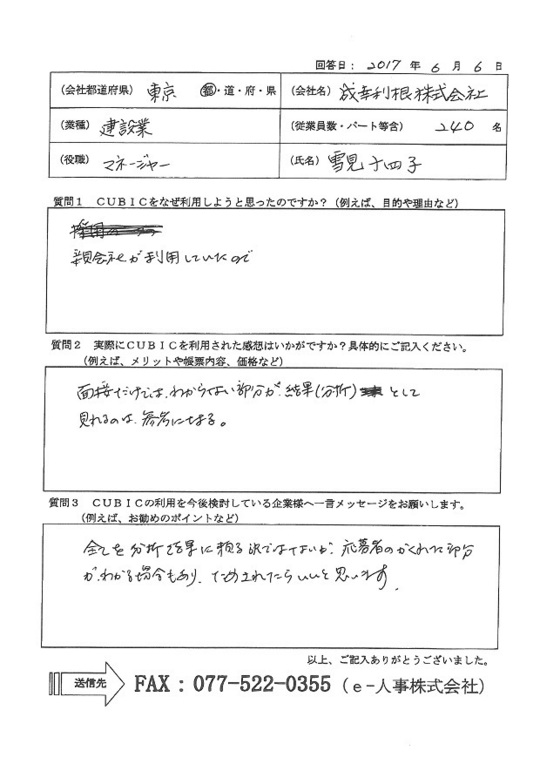 回答日： 2017 年 6 月 6 日
(会社都道府県) 東京 都・道・府・県 (会社名) 成幸利根株式会社
(業種) 建設業 (従業員数・パート等含) 240 名
(役職) マネージャー (氏名) 雪見十四子
質問１ ＣＵＢＩＣをなぜ利用しようと思ったのですか？（例えば、目的や理由など）
親会社が利用していたので
質問２ 実際にＣＵＢＩＣを利用された感想はいかがですか？具体的にご記入ください。
（例えば、メリットや帳票内容、価格など）
面接だけでは、わからない部分が、結果(分析)として
見れるのは、参考になる。
質問３ ＣＵＢＩＣの利用を今後検討している企業様へ一言メッセージをお願いします。
（例えば、お勧めのポイントなど）
全てを分析結果に頼る訳ではないが、応募者のかくれた部分
が、わかる場合もあり、ためされたらいいと思います。
以上、ご記入ありがとうございました。
送信先 FAX：077-522-0355（ｅ−人事株式会社）